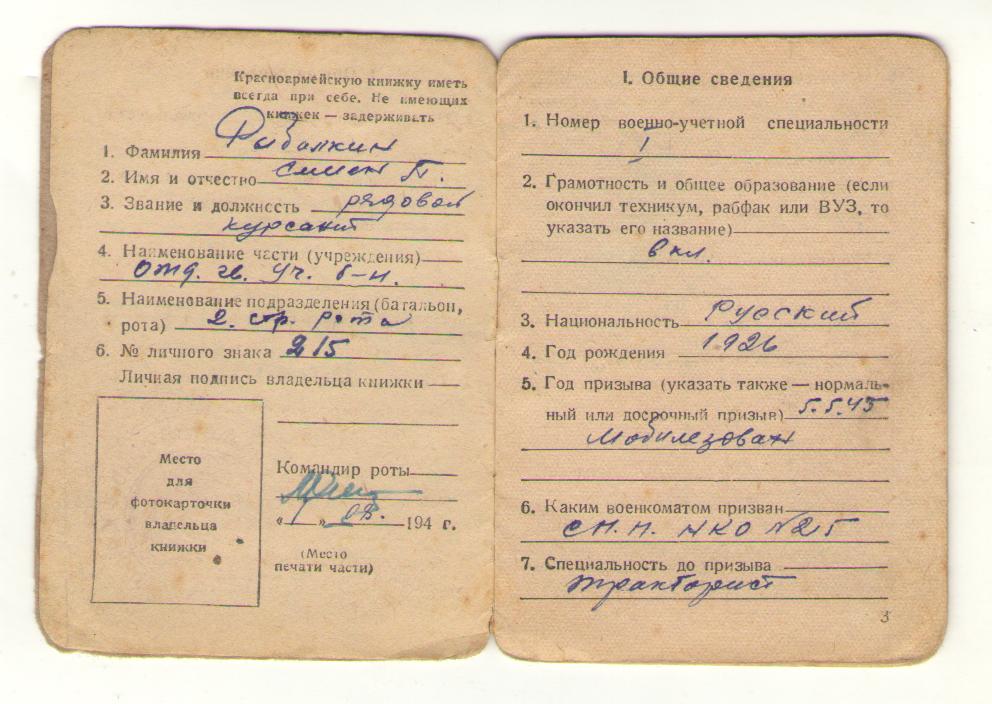 Красноармейскую книжку иметь
всегда при себе. Не имеющих
книжек — задерживать
1. Фамилия
2. Имя и отчество П.
3. Звание и должность рядовой
курсант
4. Наименование части (учреждения)
отд. гв. уч. б-н.
5. Наименование подразделения (батальон,
рота) 2. стр. рота
6. № личного знака 215
Личная подпись владельца книжки
Место
для
фотокарточки
владельца
книжки
Командир роты
«1» 08. 194 г.
(Место
печати части)
I. Общие сведения
1. Номер военно-учетной специальности
1
2. Грамотность и общее образование (если
окончил техникум, рабфак или ВУЗ, то
указать его название)
6 кл.
3. Национальность Русский
4. Год рождения 1926
5. Год призыва (указать также — нормаль-
ный или досрочный призыв) 5.5.45
Мобилезован
6. Каким военкоматом призван
НКО №25
7. Специальность до призыва
тракторист
3